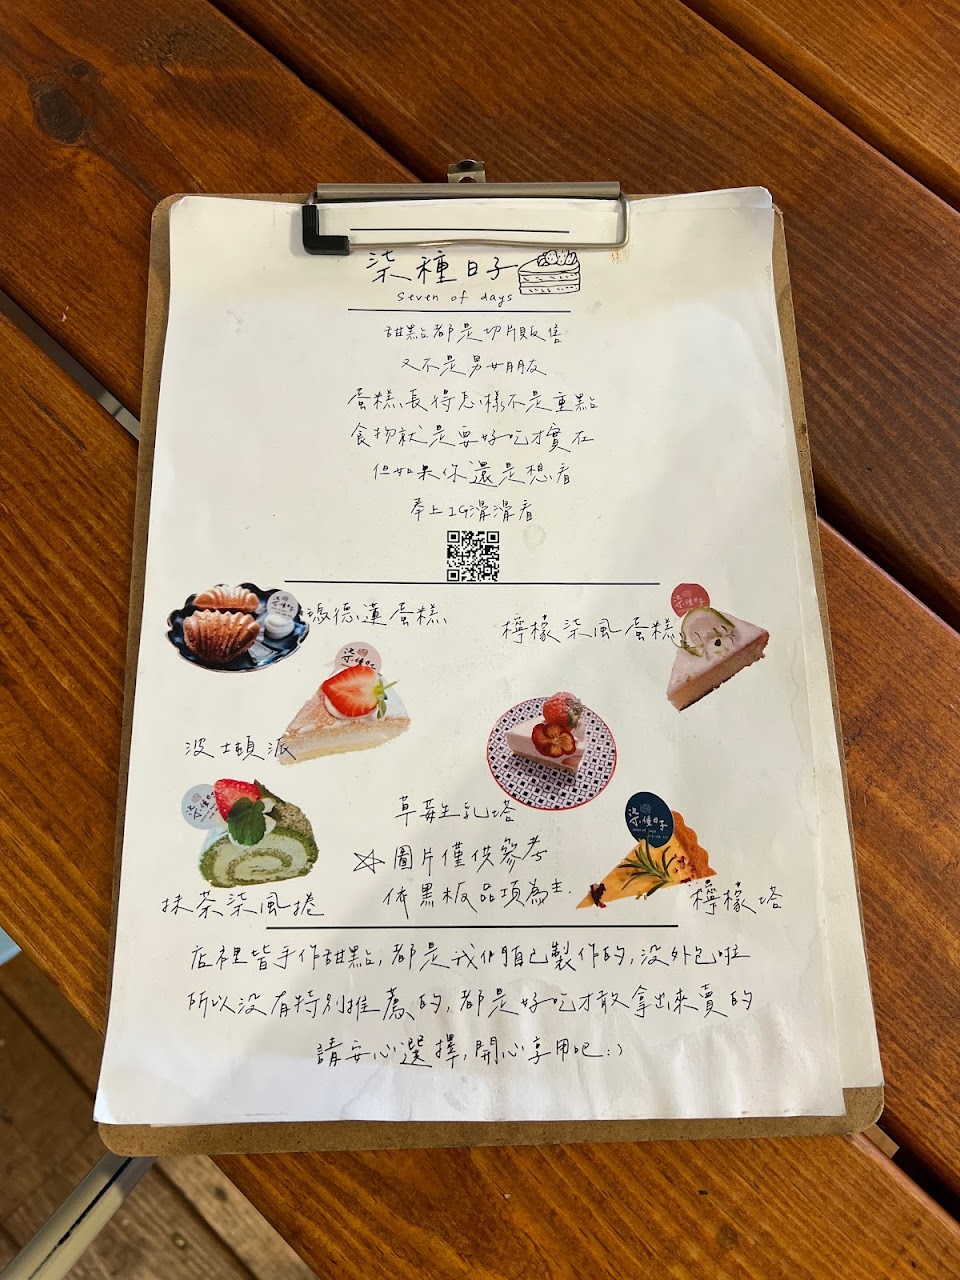 柒種日子
seven of days
甜點都是切片販售
又不是男女朋友
蛋糕長得怎樣不是重點
食物就是要好吃才實在
但如果你還是想看
奉上IG滑滑看
瑪德蓮蛋糕
檸檬柒風蛋糕
波士頓派
草莓生乳塔
抹茶柒風捲
☆圖片僅供參考
依黑板品項為主.
檸檬塔
店裡皆手作甜點,都是我們自己製作的,沒外包啦
所以沒有特別推薦的,都是好吃才敢拿出來賣的
請安心選擇,開心享用吧:)
柒種日子
柒種日子
柒種日子
柒種日子